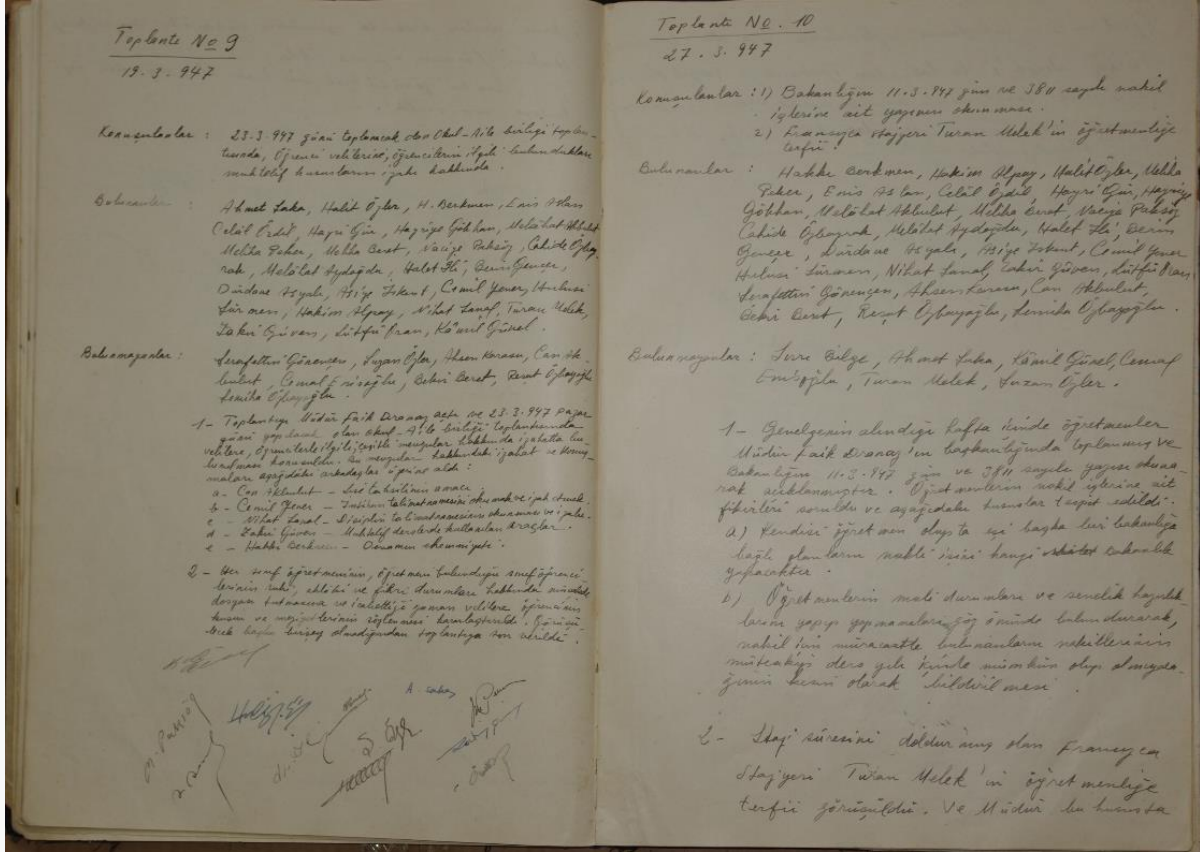 Toplantı No 9
19.3.947
Konuşulanlar : 23.3.947 günü toplanacak olan Okul-Aile birliği toplan-
tısında, öğrenci velilerine, öğrencilerin ilgili bulundukları
muhtelif hususların izahı hakkında.
Bulunanlar : Ahmet Saka, Halit Özler, H. Berkmen, Enis Aslan
Celâl Özdil, Hayri Gür, Hayriye Gökhan, Melâhat Akbulut
Meliha Peker, Meliha Beret, Naciye Paksöy, Cahide Özbay-
rak, Melâhat Aydoğdu, Halet İli, Berin Gençer,
Dürdane Asyalı, Asiye İskent, Cemil Yener, Hulusi
Sürmen, Hakim Alpay, Nihat Sanal, Turan Melek,
Zakir Güven, Lütfü Oran, Kâmil Günel.
Bulunmayanlar : Şerafettin Gönençen, Suzan Özler, Ahsen Karasu, Can Ak-
bulut, Cemal Enisoğlu, Bekir Beret, Reşat Özbayoğlu
Semiha Özbayoğlu.
1- Toplantıyı Müdür Faik Dranaz açtı ve 23.3.947 pazar
günü yapılacak olan okul-Aile birliği toplantısında
velilere, öğrencilerle ilgili çeşitli mevzular hakkında izahatta bu-
lunulması konuşuldu. Bu mevzular hakkındaki izahat ve konuş-
maları aşağıdaki arkadaşlar üzerine aldı :
a- Can Akbulut - Lise tahsilinin amacı.
b- Cemil Yener - İmtihan talimatnamesini okumak ve izah etmek.
c- Nihat Sanal - Disiplin talimatnamesinin okunması ve izahı.
d- Zakir Güven - Muhtelif derslerde kullanılan araçlar.
e- Hakkı Berkmen - Devamın ehemmiyeti.
2- Her sınıf öğretmeninin, öğretmeni bulunduğu sınıf öğrenci-
lerinin ruhi, ahlâki ve fikri durumları hakkında
dosyası tutmasına ve icabettiği zaman velilere öğrencinin
kusur ve meziyetlerinin söylenmesi kararlaştırıldı. Görüşü-
lecek başka birşey olmadığından toplantıya son verildi.
Toplantı No. 10
27.3.947
Konuşulanlar : 1) Bakanlığın 11.3.947 gün ve 3811 sayılı nakil
işlerine ait yazının okunması.
2) Fransızca stajyeri Turan Melek'in öğretmenliğe
terfii.
Bulunanlar : Hakkı Berkmen, Hakim Alpay, Halit Özler, Meliha
Peker, Enis Aslan, Celâl Özdil, Hayri Gür, Hayriye
Gökhan, Melâhat Akbulut, Meliha Beret, Naciye Paksöy
Cahide Özbayrak, Melâhat Aydoğdu, Halet İli, Berin
Gençer, Dürdane Asyalı, Asiye İskent, Cemil Yener
Hulusi Sürmen, Nihat Sanal, Zakir Güven, Lütfü Oran,
Şerafettin Gönençen, Ahsen Karasu, Can Akbulut,
Bekir Beret, Reşat Özbayoğlu, Semiha Özbayoğlu.
Bulunmayanlar : Sırrı Bilge, Ahmet Saka, Kâmil Günel, Cemal
Enisoğlu, Turan Melek, Suzan Özler.
1- Genelgenin alındığı hafta içinde öğretmenler
Müdür Faik Dranaz'ın başkanlığında toplanmış ve
Bakanlığın 11.3.947 gün ve 3811 sayılı yazısı okuna-
rak açıklanmıştır. Öğretmenlerin nakil işlerine ait
fikirleri soruldu ve aşağıdaki hususlar tespit edildi.
a) Kendisi öğretmen olup ta eşi başka bir bakanlığa
bağlı olanların nakli işini hangi Bakanlık
yapacaktır.
b) Öğretmenlerin mali durumları ve senelik hazırlık-
larını yapıp yapmamaları göz önünde bulundurarak,
nakil için müracaatte bulunanların nakillerinin
müteakip ders yılı içinde mümkün olup olmıyaca-
ğının kesin olarak bildirilmesi.
2- Staj süresini doldurmuş olan Fransızca
Stajyeri Turan Melek'in öğretmenliğe
terfii görüşüldü. Ve Müdür bu hususta